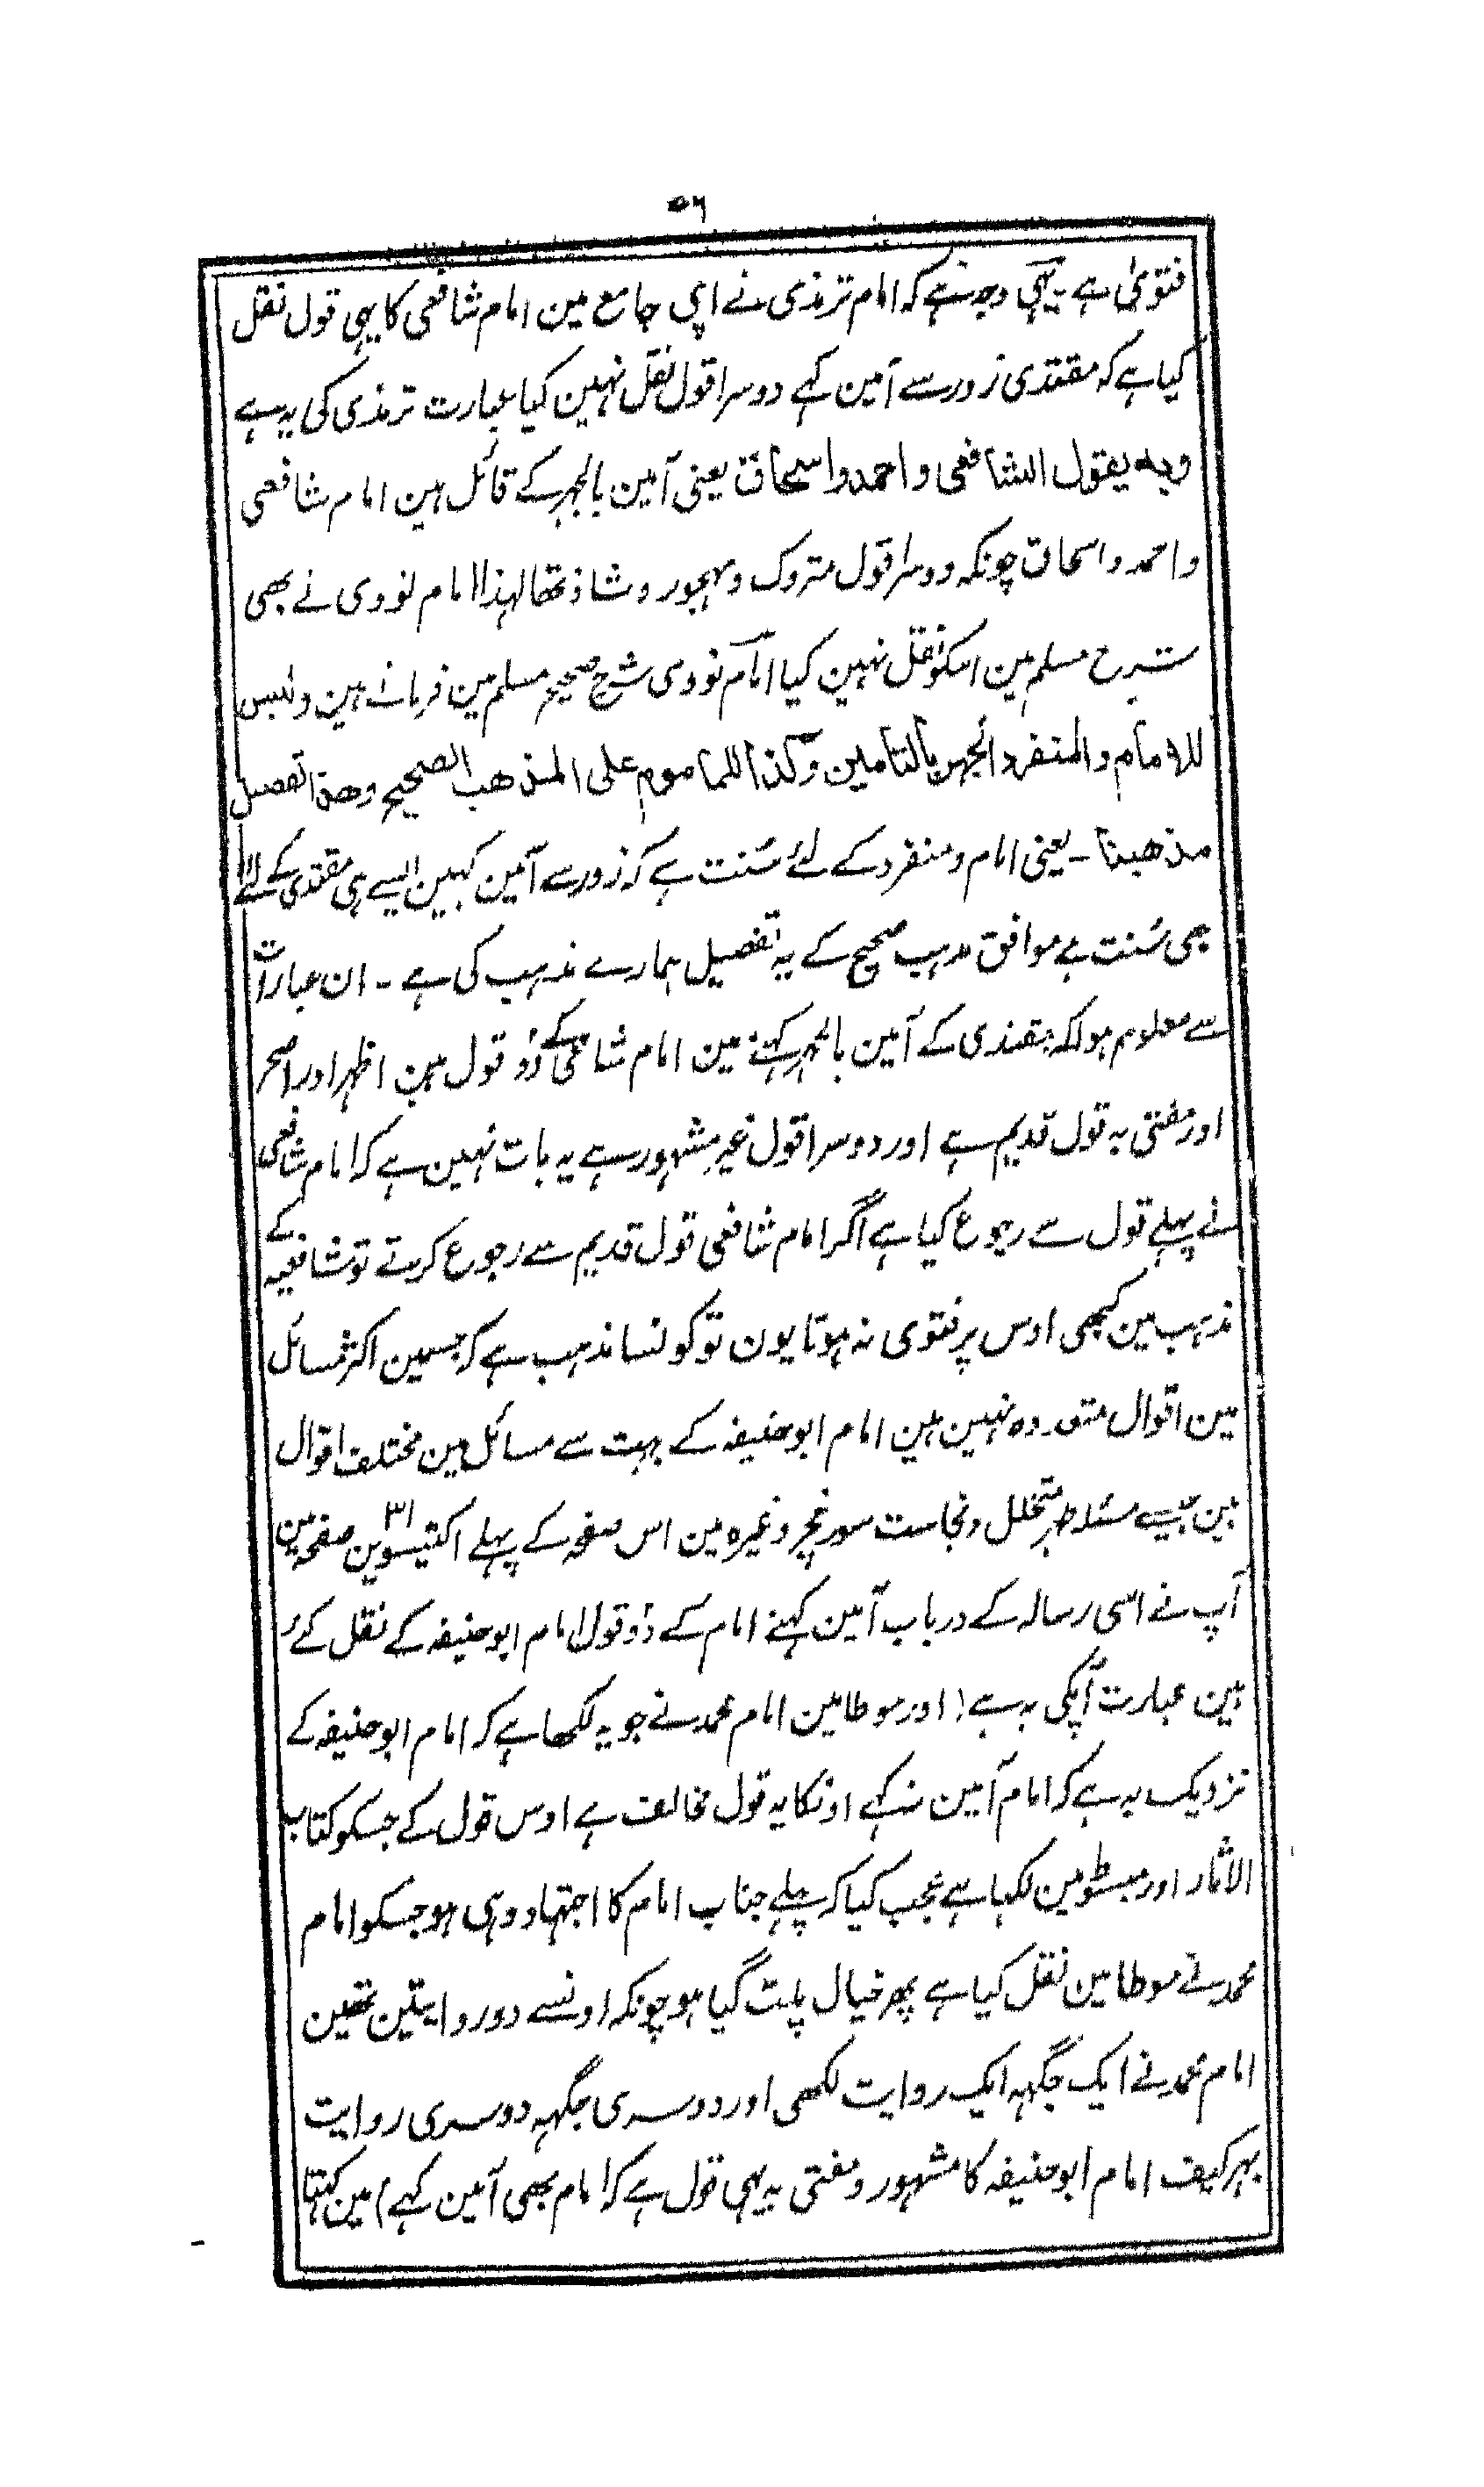 ۵۶
فتویٰ ہے یہی وجہ ہے کہ امام ترمذی نے اپی جامع مین امام شافعی کا یہی قول نقل
کیا ہے کہ مقتدی زور سے آمین کہے دوسرا قول نقل نہین کیا عبارت ترمذی کی یہ ہے
وبه يقول الشافعى واحمد واسحاق یعنی آمین بالجہر کے قائل ہین امام شافعی
واحمد واسحاق چونکہ دوسرا قول متروک ومہجور وشاذ تھا لہذا امام نووی نے بھی
شرح مسلم مین اسکو نقل نہین کیا امام نووی شرح صحیح مسلم مین فرماتے ہین ولیس
للامام والمنفرد الجهر بالتامين وكذا للماموم على المذهب الصحيح وهذا تفصيل
مذهبنا ۔ یعنی امام ومنفرد کے لئے سُنت ہے کہ زور سے آمین کہین ایسے ہی مقتدی کے لئے
بھی سُنت ہے موافق مذہب صحیح کے یہ تفصیل ہمارے مذہب کی ہے ۔ ان عبارات
سے معلوم ہوا کہ مقتدی کے آمین بالجہر کہنے مین امام شافعی کے دُو قول ہین اظہر اور اصح
اور مفتی بہ قول قدیم ہے اور دوسرا قول غیر مشہور ہے یہ بات نہین ہے کہ امام شافعی
نے پہلے قول سے رجوع کیا ہے اگر امام شافعی قول قدیم سے رجوع کرتے تو شافعیہ کے
مذہب مین کبھی اوس پر فتوی نہ ہوتا یون تو کونسا مذہب ہے کہ جسمین اکثر مسائل
مین اقوال متعددہ نہین ہین امام ابو حنیفہ کے بہت سے مسائل مین مختلف اقوال
ہین جیسے مسئلہ طہر متخلل ونجاست سور وغیرہ مین اس صفحہ کے پہلے اکتیسوین ۳۱ صفحہ مین
آپ نے اسی رسالہ کے درباب آمین کہنے امام کے دُو قول امام ابو حنیفہ کے نقل کئے
ہین عبارت آپکی یہ ہے (اور موطا مین امام محمد نے جو یہ لکھا ہے کہ امام ابو حنیفہ کے
نزدیک یہ ہے کہ امام آمین نہ کہے اونکا یہ قول مخالف ہے اوس قول کے جسکو کتاب
الاثار اور مبسوط مین لکہا ہے عجب کیا کہ پہلے جناب امام کا اجتہاد وہی ہو جسکو امام
محمد نے موطا مین نقل کیا ہے پھر خیال پلٹ گیا ہو چونکہ اونسے دو روایتین تھین
امام محمد نے ایک جگہہ ایک روایت لکھی اور دوسری جگہہ دوسری روایت
بہر کیف امام ابو حنیفہ کا مشہور ومفتی بہ یہی قول ہے کہ امام بھی آمین کہے) مین کہتا